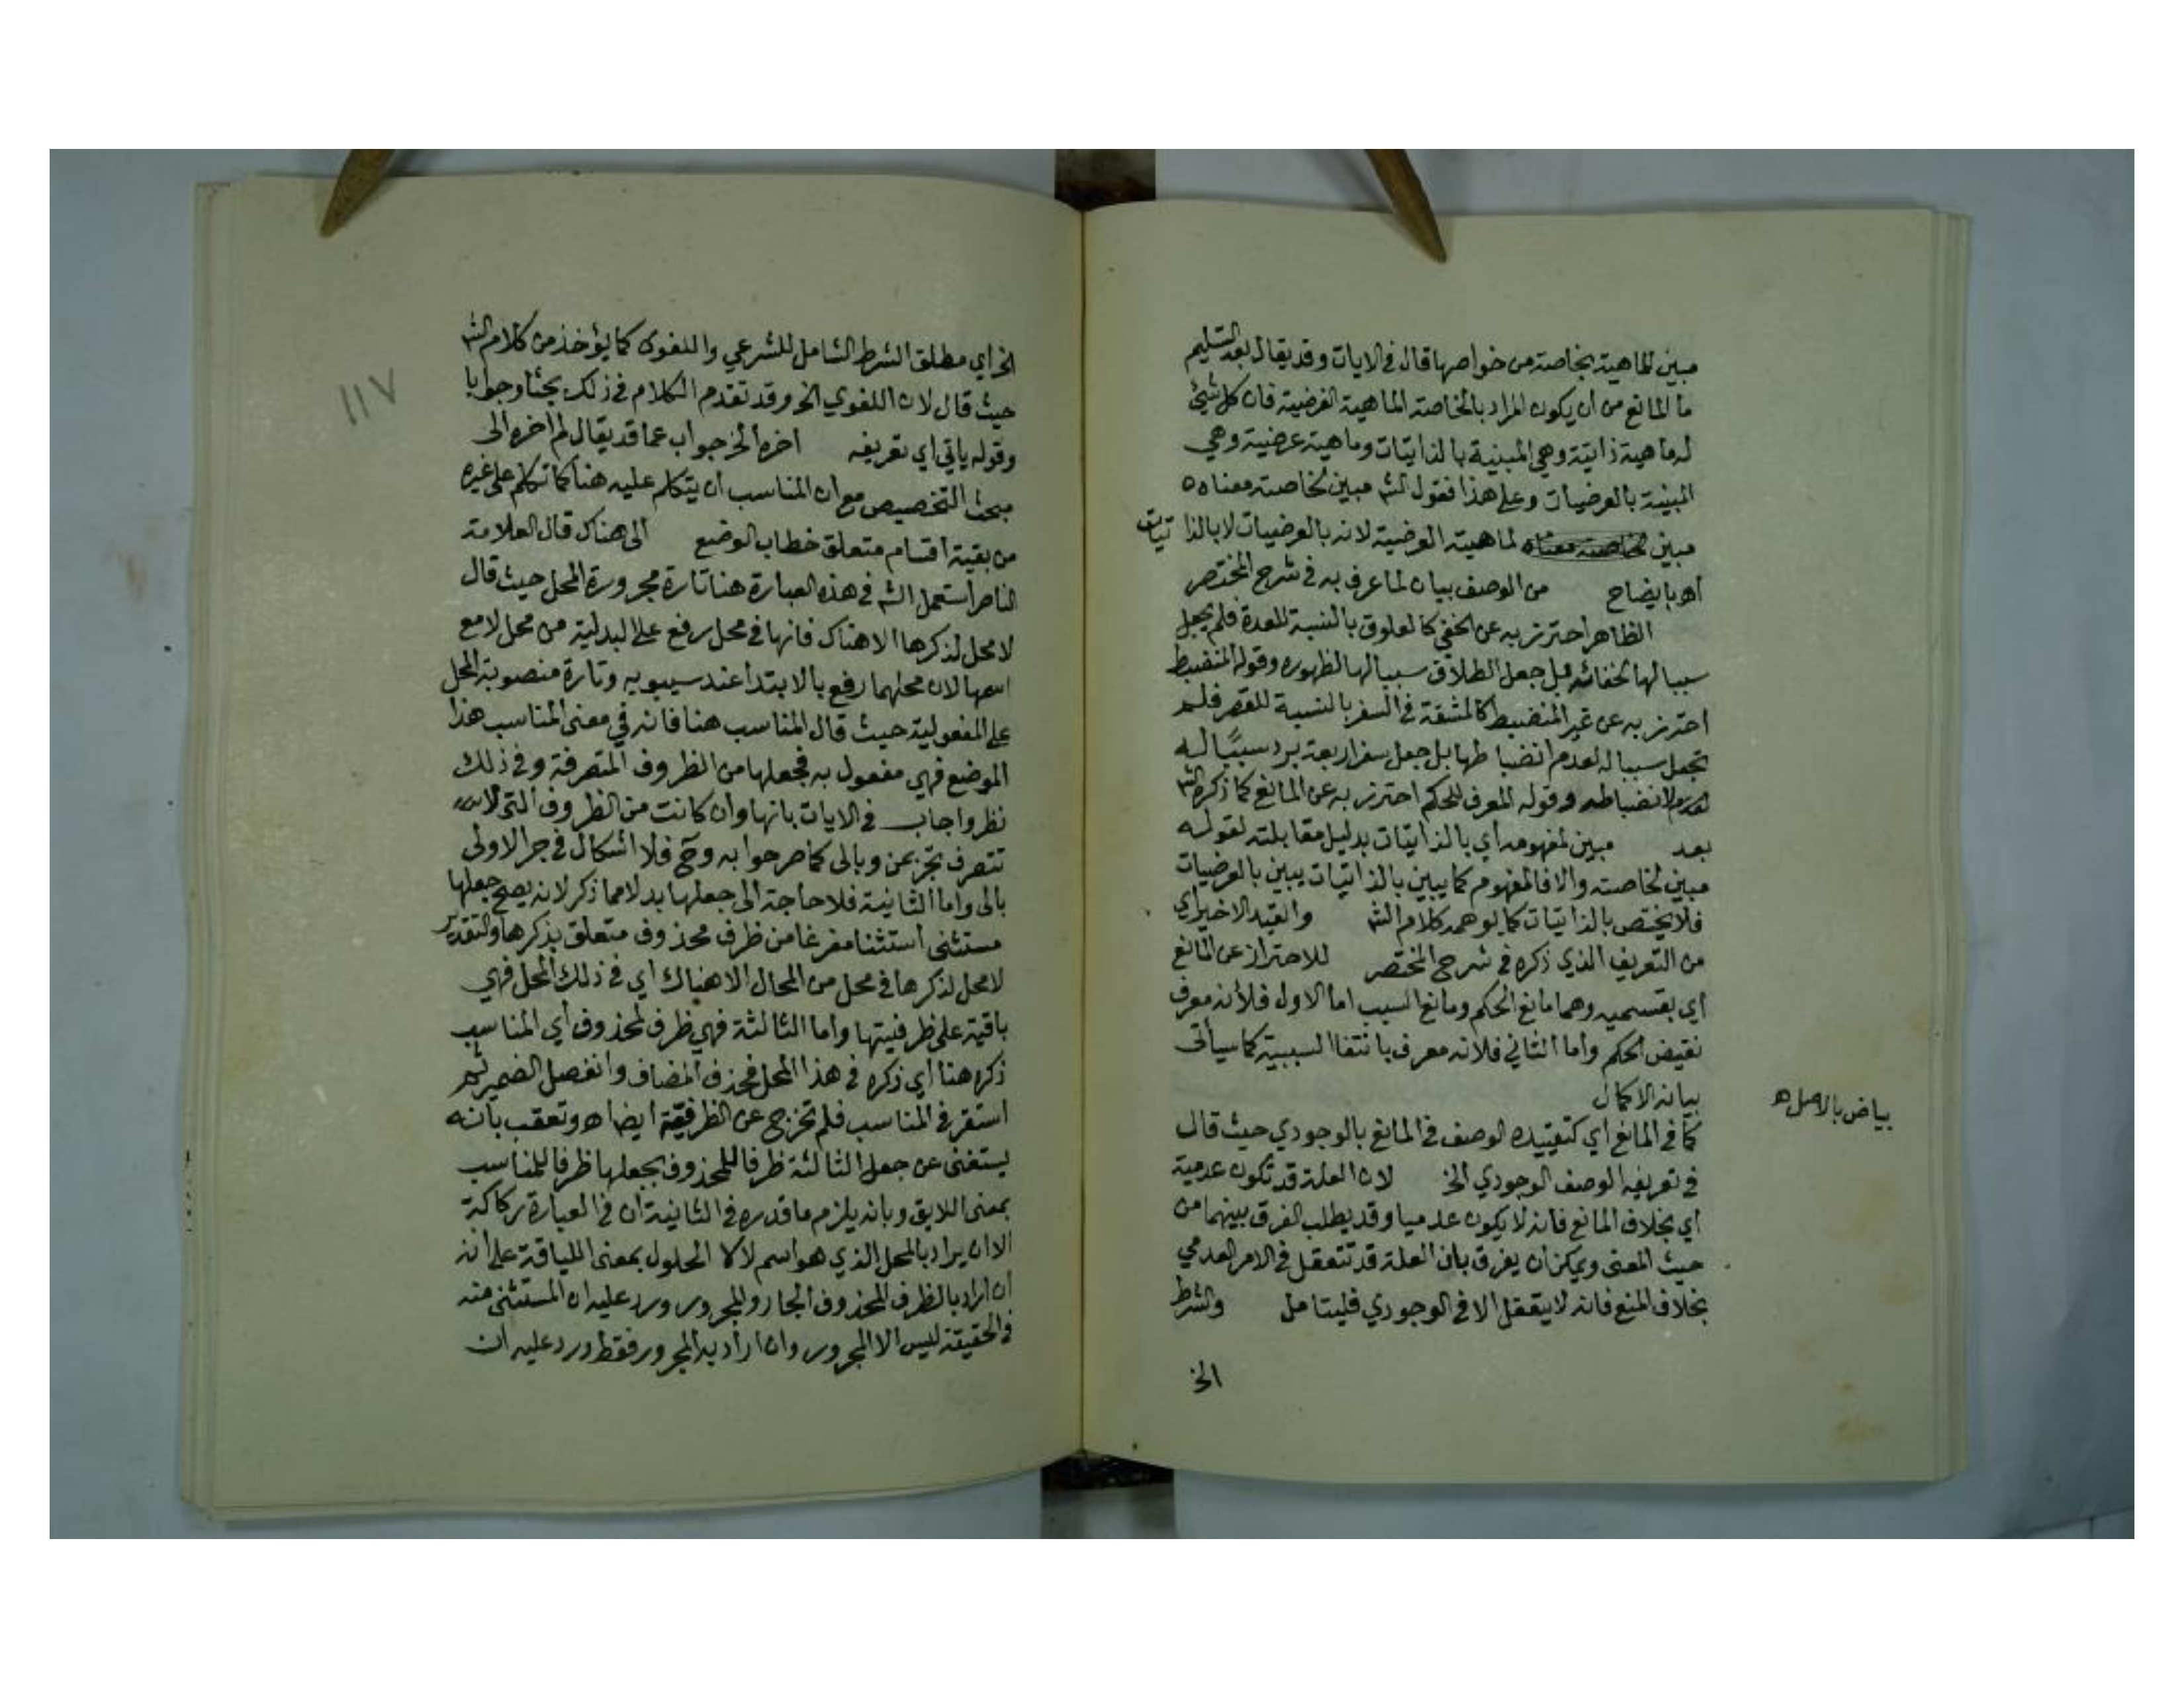 مبين للماهية بخاصة من خواصها قال في الايات وقد يقال بعد التسليم
ما المانع من ان يكون المراد بالخاصة الماهية العرضية فان كل شيئ
له ماهية ذاتية وهي المبينية بالذايتات وماهية عرضية وهي
المبينة بالعرضيات وعلى هذا فقول الش مبين لخاصته معناه ٥
مبين لخاصته معناه لماهيته العرضية لانه بالعرضيات لا بالذا تيات
اه بايضاح من الوصف بيان لما عرف به في شرح المختصر
الظاهر احترز به عن الخفي كالعلوق بالنسبة للعدة فلم يجعل
سببا لها لخفائه بل جعل الطلاق سببا لها لظهوره وقوله المنضبط
احترز به عن غير المنضبط كالمشقة في السفر بالنسبة للقصر فلم
تجعل سببا له لعدم انضباطها بل جعل سفر اربعة برد سببًا له
لانضباطه وقوله المعرف للحكم احترز به عن المانع كما ذكره الش
بعد مبين لمفهومه أي بالذايتات بدليل مقابلته لقوله
مبين لخاصته والا فالمفهوم كما يبين بالذايتات يبين بالعرضيات
فلا يختص بالذايتات كما يوهمه كلام الش والقيد الاخير أي
من التعريف الذي ذكره في شرح المختصر للاحتراز عن المانع
أي بقسميه وهما مانع الحكم ومانع السبب اما الاول فلأنه معرف
نقيض الحكم واما الثاني فلانه معرف بانتفا السببية كما سيأتى
بيانه الاكمال
بياض بالاصل ه
كما في المانع أي كتقييده الوصف في المانع بالوجودي حيث قال
في تعريفه الوصف الوجودي الخ لان العلة قد تكون عدمية
أي بخلاف المانع فانه لا يكون عدميا وقد يطلب الفرق بينهما من
حيث المعنى ويمكن ان يفرق بان العلة قد تتعقل في الامر العدمي
بخلاف المنع فانه لا يتعقل الا في الوجودي فليتامل والشرط
الخ
١١٧
الخ أي مطلق الشرط الشامل للشرعي واللغوى كما يؤخذ من كلام الش
حيث قال لان اللغوي الخ وقد تقدم الكلام في ذلك بحثا وجوابا
وقوله ياتي اي تعريفه اخره الخ جواب عما قد يقال لم اخره الى
مبحث التخصيص مع ان المناسب ان يتكلم عليه هنا كما تكلم على غيره
من بقية اقسام متعلق خطاب الوضع الى هناك قال العلامة
الناصر استعمل الش في هذه العبارة هنا تارة مجرورة المحل حيث قال
لا محل لذكرها الا هناك فانها في محل رفع على البدلية من محل لا مع
اسمها لان محلهما رفع بالابتدا عند سيبويه وتارة منصوبة المحل
على المفعولية حيث قال المناسب هنا فانه في معنى المناسب هذا
الموضع فهي مفعول به فجعلها من الظروف المتصرفة وفي ذلك
نظر واجاب في الايات بانها وان كانت من الظروف التي لا
تتصرف تجر بمن وبالى كما صرحوا به وح فلا اشكال في جر الاولى
بالى واما الثانية فلا حاجة الى جعلها بدلا مما ذكر لانه يصح جعلها
مستثنى استثنا مفرغا من ظرف محذوف متعلق بذكرها والتقدير
لا محل لذكرها في محل من المحال الا هناك أي في ذلك المحل فهي
باقية على ظرفيتها واما الثالثة فهي ظرف لمحذوف أي المناسب
ذكره هنا أي ذكره في هذا المحل فحذف المضاف وانفصل الضمير ثم
استقر في المناسب فلم تخرج عن الظرفية ايضا اه وتعقب بانه
يستغنى عن جعل الثالثة ظرفا للمحذوف بجعلها ظرفا للمناسب
بمعنى اللايق وبانه يلزم ما قدره في الثانية ان في العبارة ركاكة
الا ان يراد بالمحل الذي هو اسم لا الحلول بمعنى اللياقة على انه
ان اراد بالظرف المحذوف الجار والمجرور ورد عليه ان المستثنى منه
في الحقيقة ليس الا المجرور وان اراد به المجرور فقط ورد عليه ان